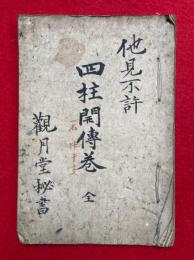 他見不許
四柱開傳巻 全
觀月堂秘書